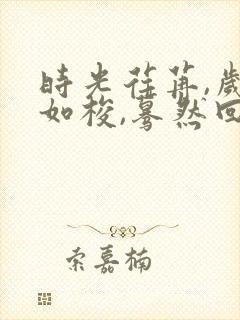 時光荏苒,歲
如梭,驀然回
索嘉楠